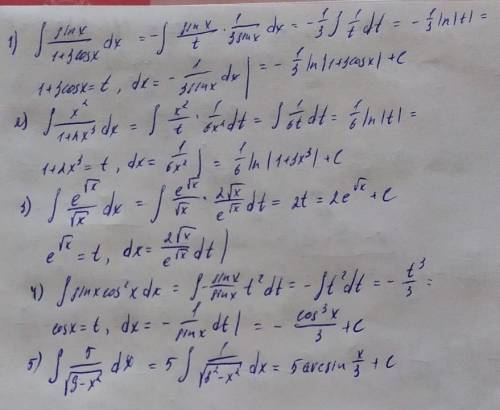 1) ∫ sinx/(1+3cosx) dx = -∫ sinx/t · 1/(3sinx) dx = -1/3 ∫ 1/t dt = -1/3 ln|t| =
1+3cosx=t, dx = -1/(3sinx) dx | = -1/3 ln|1+3cosx|+C
2) ∫ x²/(1+2x³) dx = ∫ x²/t · 1/(6x²) dt = ∫ 1/(6t) dt = 1/6 ln|t| =
1+2x³=t, dx = 1/(6x²) ⌋ = 1/6 ln|1+3x³|+C
3) ∫ e^√x/√x dx = ∫ e^√x/√x · 2√x/e^√x dt = 2t = 2e^√x+C
e^√x = t, dx = 2√x/e^√x dt |
4) ∫ sinx cos²x dx = ∫ -sinx/sinx t² dt = -∫ t² dt = -t³/3 =
cosx=t, dx = -1/sinx dt | = -cos³x/3 +C
5) ∫ 5/√(9-x²) dx = 5 ∫ 1/√(3²-x²) dx = 5 arcsin x/3 +C